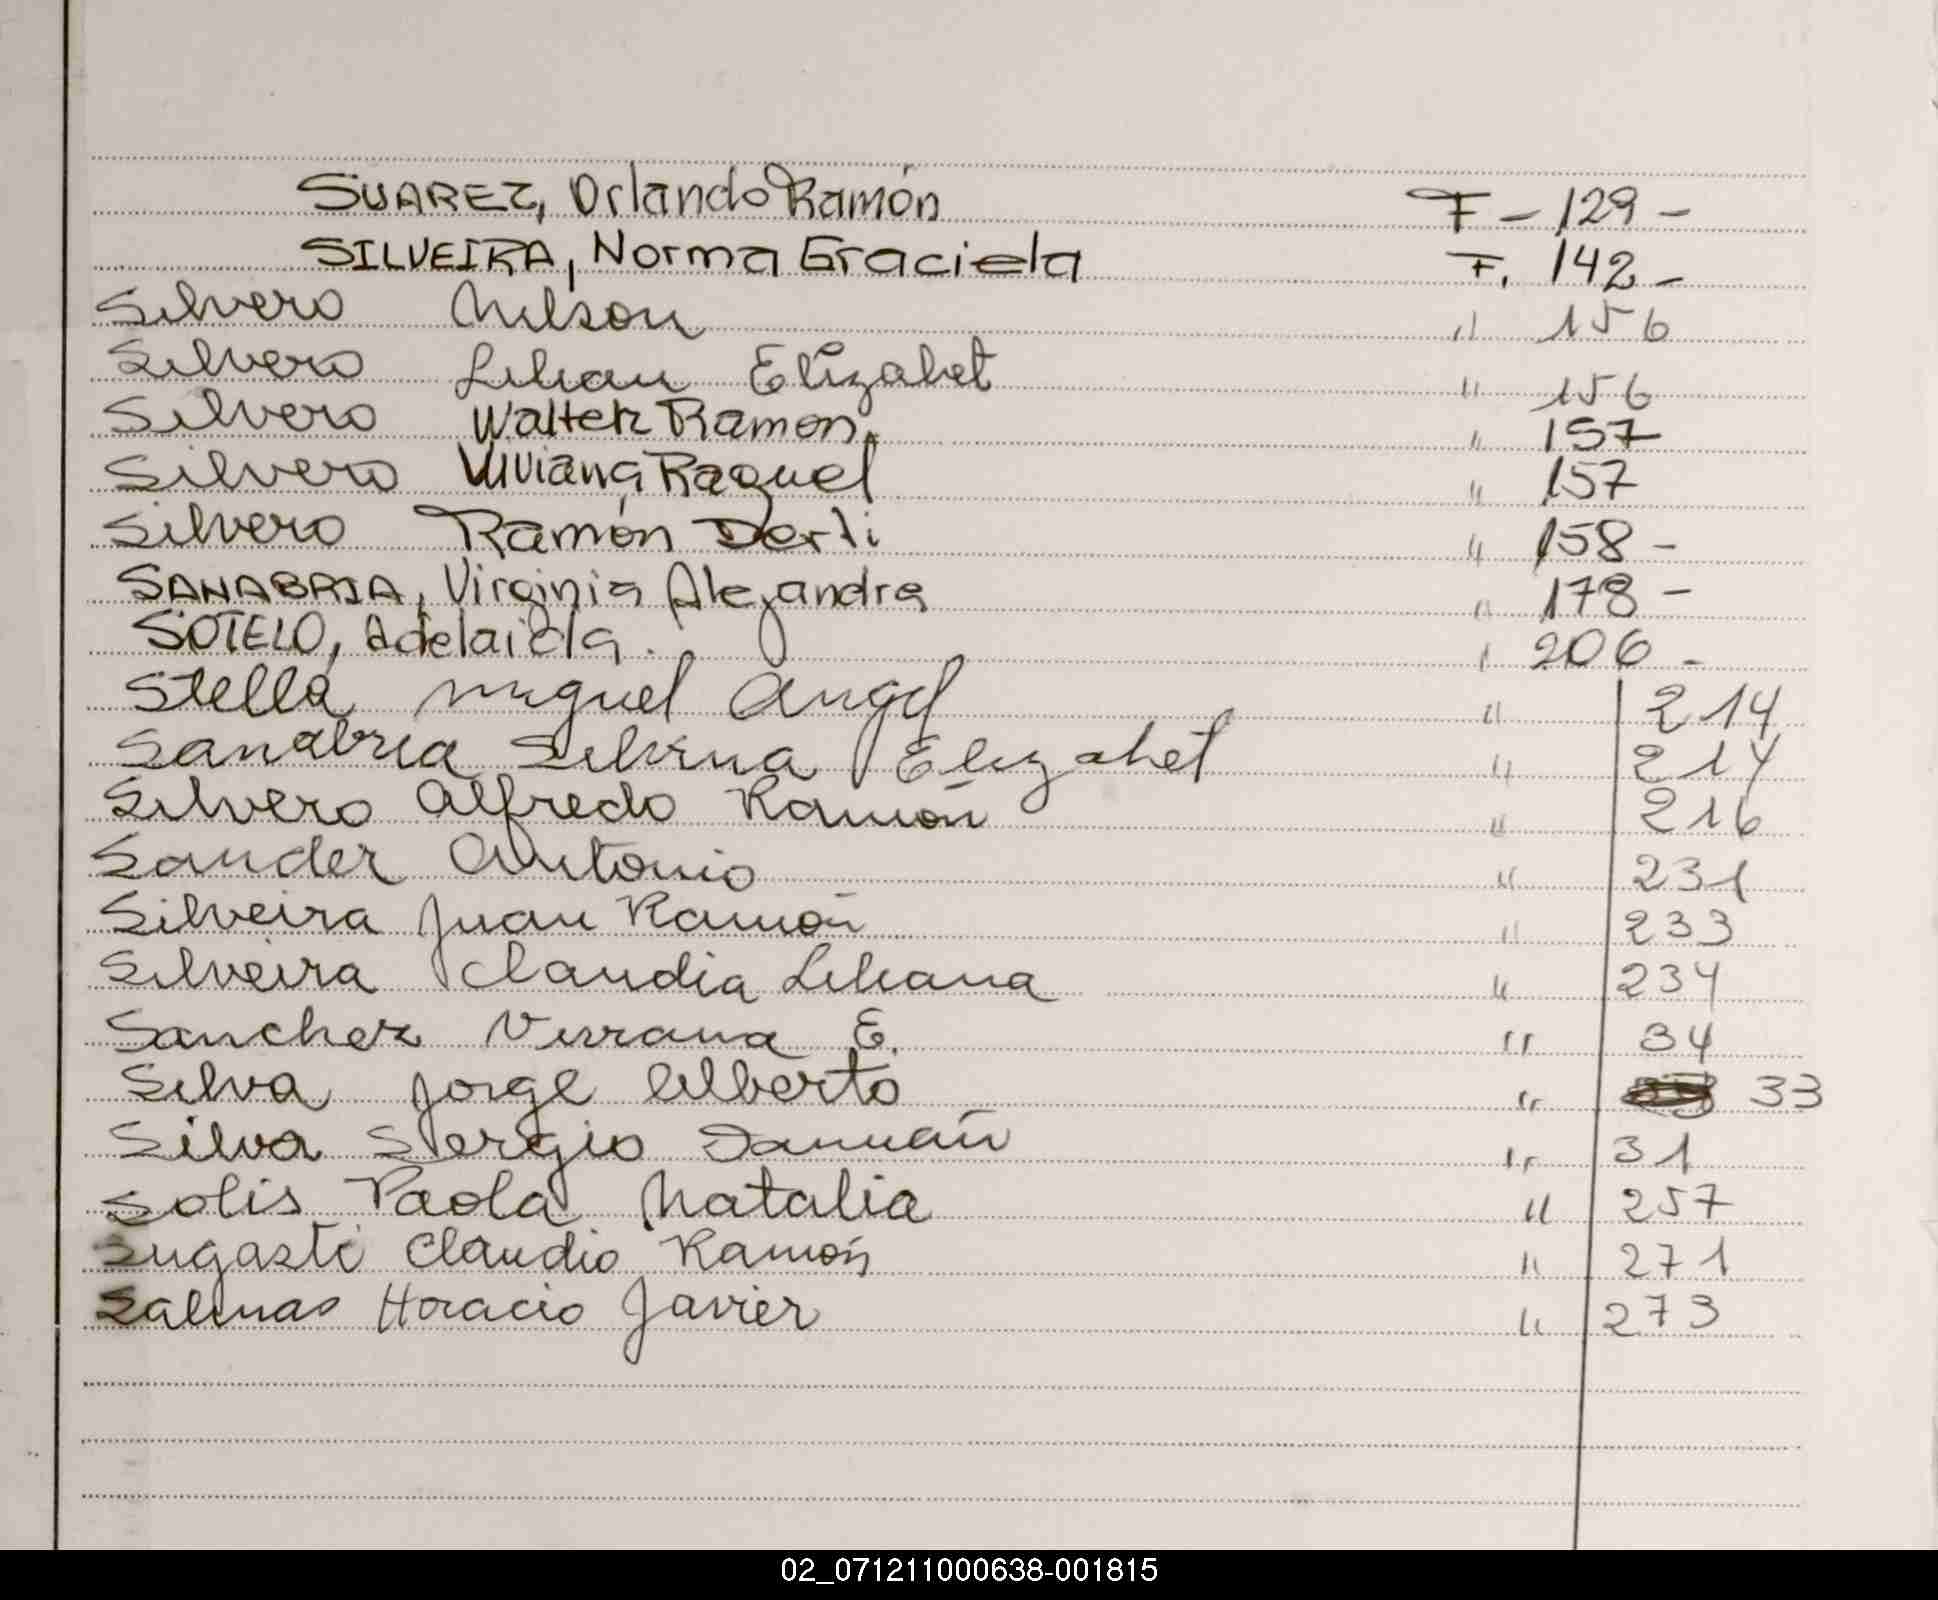 SUAREZ, Orlando Ramón F - 129 -
SILVEIRA, Norma Graciela F. 142 -
Silvero Nelson " 156
Silvero Lilian Elizabet " 156
Silvero Walter Ramon. " 157
Silvero Viviana Raquel " 157
Silvero Ramón Derli " 158 -
SANABRIA, Virginia Alejandra " 178 -
SOTELO, Adelaida. " 206 -
Stella Miguel Angel " 214
Sanabria Silvina Elizabet " 214
Silvero Alfredo Ramón " 216
Sander Antonio " 231
Silveira Juan Ramón " 233
Silveira Claudia Liliana " 234
Sanchez E. " 34
Silva Jorge Alberto " 33
Silva Sergio Damian " 31
Solis Paola Natalia " 257
Sugasti Claudio Ramón " 271
Salinas Horacio Javier " 273
02_071211000638-001815